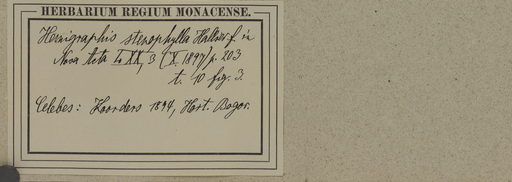 HERBARIUM REGIUM MONACENSE.
Hemigraphis stenophylla Hallier f. in
Nova Acta LXX, 3 (X. 1897) p. 203
t. 10 fig. 3.
Celebes: Koorders 1894, Hort. Bogor.